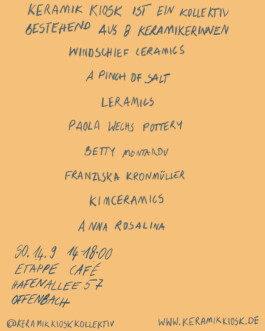 KERAMIK KIOSK IST EIN KOLLEKTIV
BESTEHEND AUS 8 KERAMIKERINNEN
WINDSCHIEF CERAMICS
A PINCH OF SALT
LERAMICS
PAOLA WECHS POTTERY
BETTY MONTARDU
FRANZISKA KRONMÜLLER
KIMCERAMICS
ANNA ROSALINA
SO. 14.9 14-18:00
ETAPPE CAFÉ
HAFENALLEE 57
OFFENBACH
@KERAMIKKIOSKKOLLEKTIV
WWW.KERAMIKKIOSK.DE